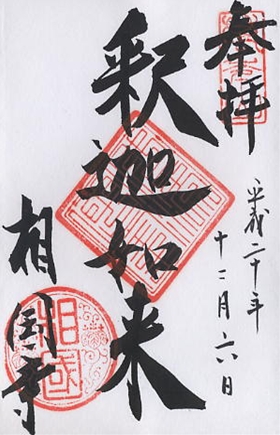 奉拝
平成二十年
十二月六日
釈迦如来
相国寺
相國